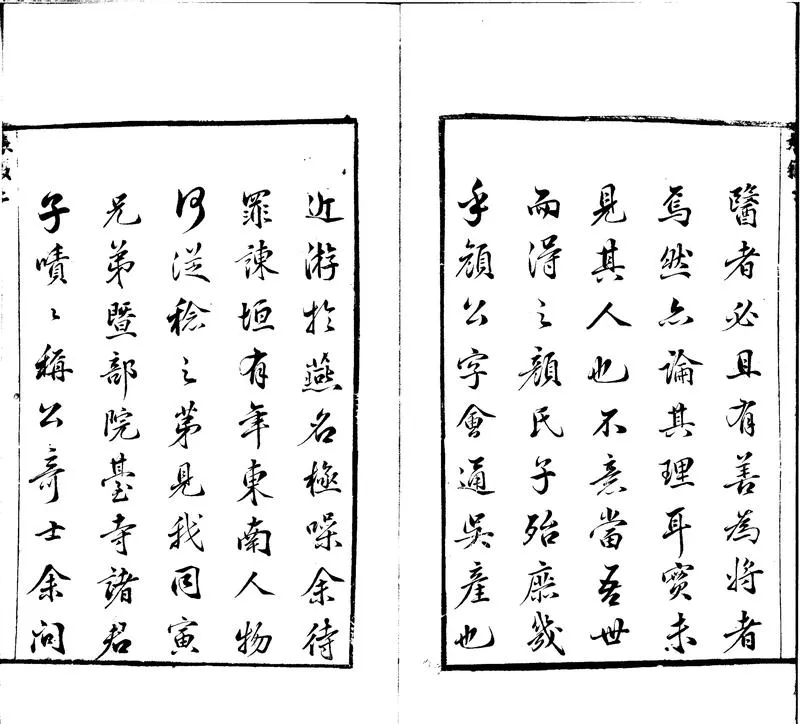 醫者必且有善為將者
焉然亦論其理耳實未
見其人也不意當吾世
而得之顏氏子殆庶幾
乎顏公字會通吳產也
近游於燕名極噪余待
罪諫垣有年東南人物
何從稔之第見我同寅
兄弟暨部院臺寺諸君
子嘖〻稱公奇士余問